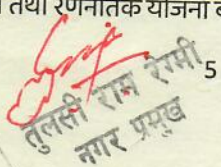 तथा रणनीतिक योजना
5
तुलसी राम रेग्मी
नगर प्रमुख